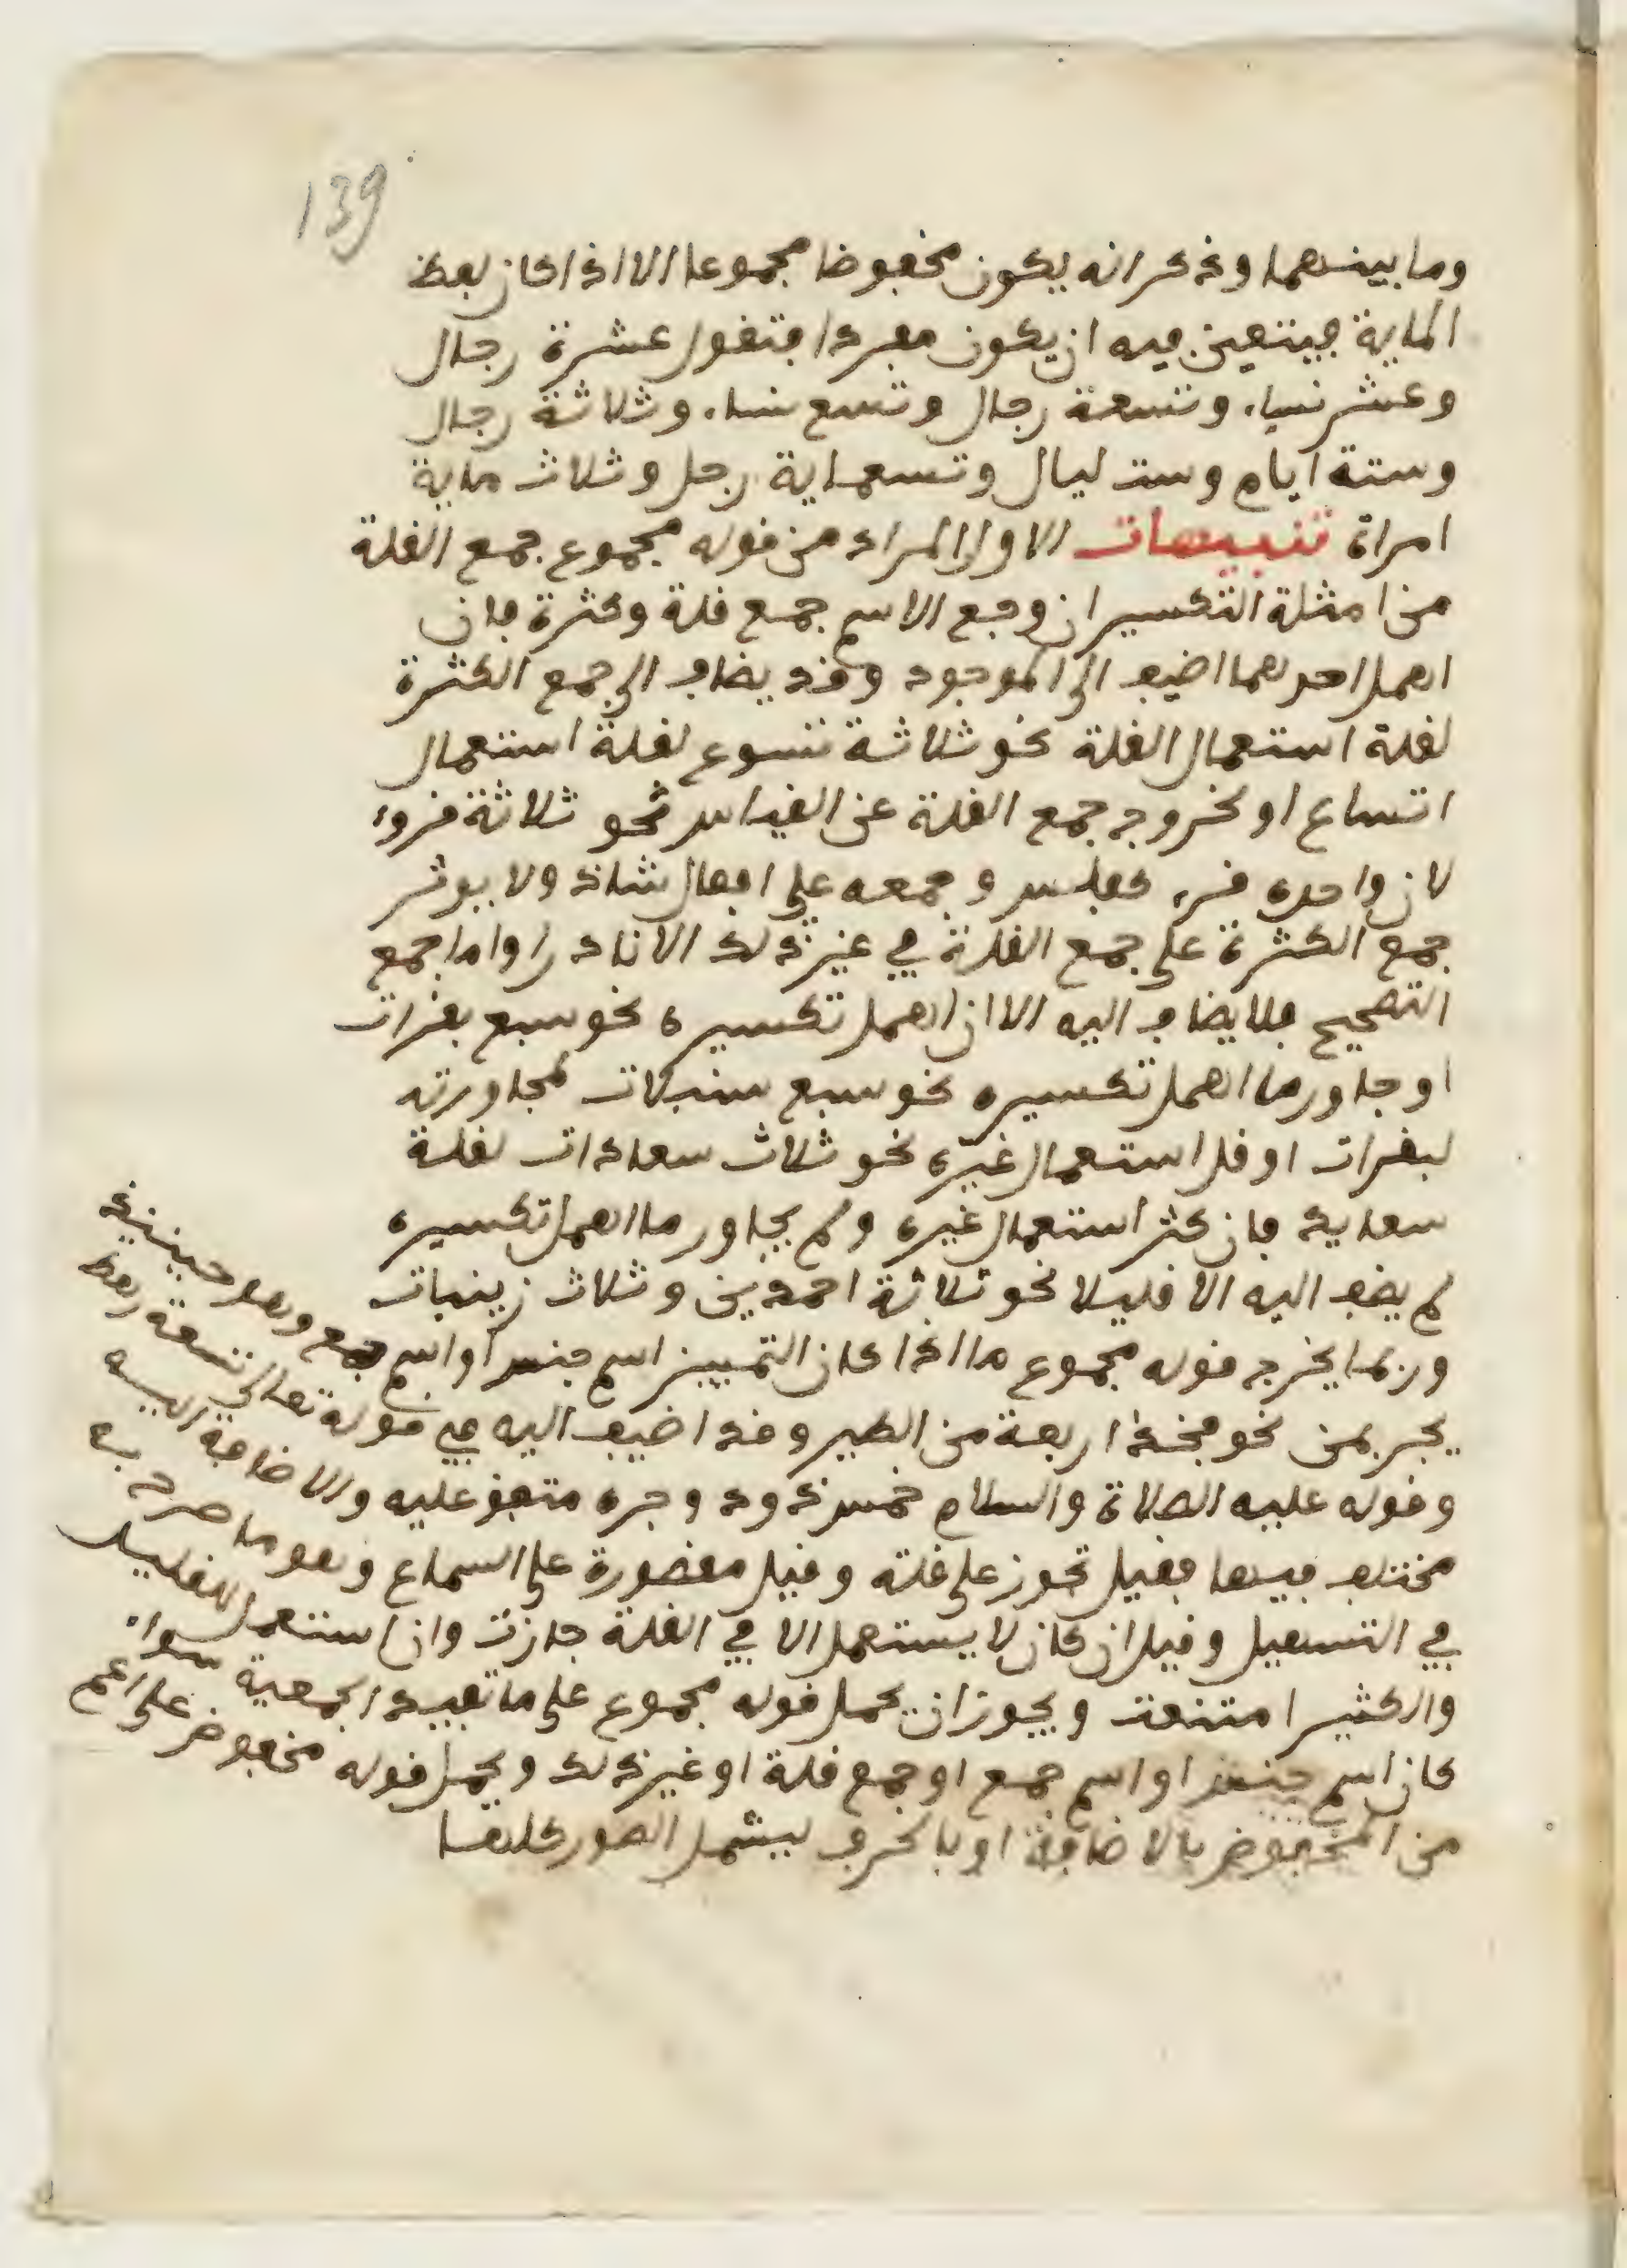 139
وما بينهما وذكر انه يكون مخفوضا مجموعا الا اذا كان لفظ
الماية فيتعين فيه ان يكون مفردا فتقول عشرة رجال
وعشر نساء وتسعة رجال وتسع نساء وثلاثة رجال
وستة ايام وست ليال وتسعماية رجل وثلاث ماية
امراة تنبيهات الاول المراد من قوله مجموع جمع القلة
من امثلة التكسير ان وجع الاسم جمع قلة وكثرة فان
اهمل احدهما اضيف الى الموجود وقد يضاف الى جمع الكثرة
لقلة استعمال القلة نحو ثلاثة تسوع لقلة استعمال
اتساع او لخروج جمع القلة عن القياس نحو ثلاثة قروء
لان واحده قرء كفلس وجمعه على افعال شاذ ولا يوثر
جمع الكثرة على جمع القلة في غير ذلك الا نادرا واما جمع
التصحيح فلا يضاف اليه الا ان اهمل تكسيره نحو سبع بقرات
او جاور ما اهمل تكسيره نحو سبع سنبلات لمجاورته
لبقرات او قل استعمال غيره نحو ثلاث سعادات لقلة
سعايد فان كثر استعمال غيره ولم يجاور ما اهمل تكسيره
لم يضف اليه الا قليلا نحو ثلاثة احمدين وثلاث زينبات
وربما يخرج قوله مجموع ما اذا كان التمييز اسم جنس او اسم جمع وهو حينيذ
يجر بمن نحو فخذ اربعة من الطير وقد اضيف اليه في قوله تعالى تسعة رهط
وقوله عليه الصلاة والسلام خمس ذود وجره متفق عليه والاضافة اليه
مختلف فيها فقيل تجوز على قلة وقيل مقصورة على السماع وهو ما صرح به
في التسهيل وقيل ان كان لا يستعمل الا في القلة جازت وان استعمل للقليل
والكثير امتنعت ويجوز ان يحمل قوله مجموع على ما تفيده الجمعية سواء
كان اسم جنس او اسم جمع او جمع قلة او غير ذلك ويحمل قوله مخفوض على اعم
من المخفوض بالاضافة او بالحرف ليشمل الصور كلها